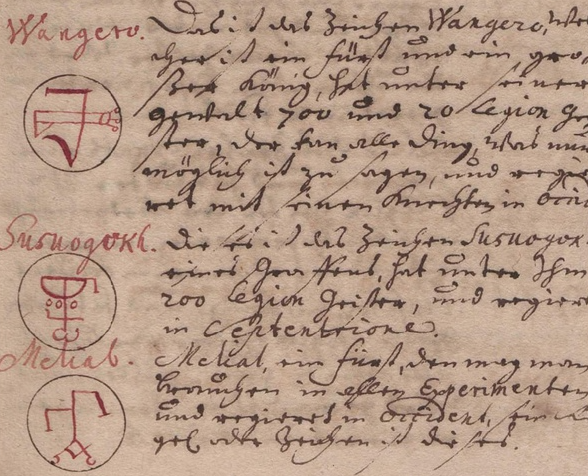 Wangero. Das ist das Zeichen Wangero, wel
cher ist ein fürst und ein gro
ßer König, hat unter seiner
gewalt 700 und 20 Legion Gei
ster, der kan alle ding, was nur
möglich ist zu sagen, und regie
ret mit seinen Knechten in Occi
Susuogokh. die ses ist das Zeichen Susuogok
eines Graffens, hat unter Ihm
200 Legion Geister, und regier
in Septentrione.
Meliab. Meliat, ein fürst, den mag man
brauchen in allen Experimenten
und regieret in Occident, sein
gel oder Zeichen ist die ses.